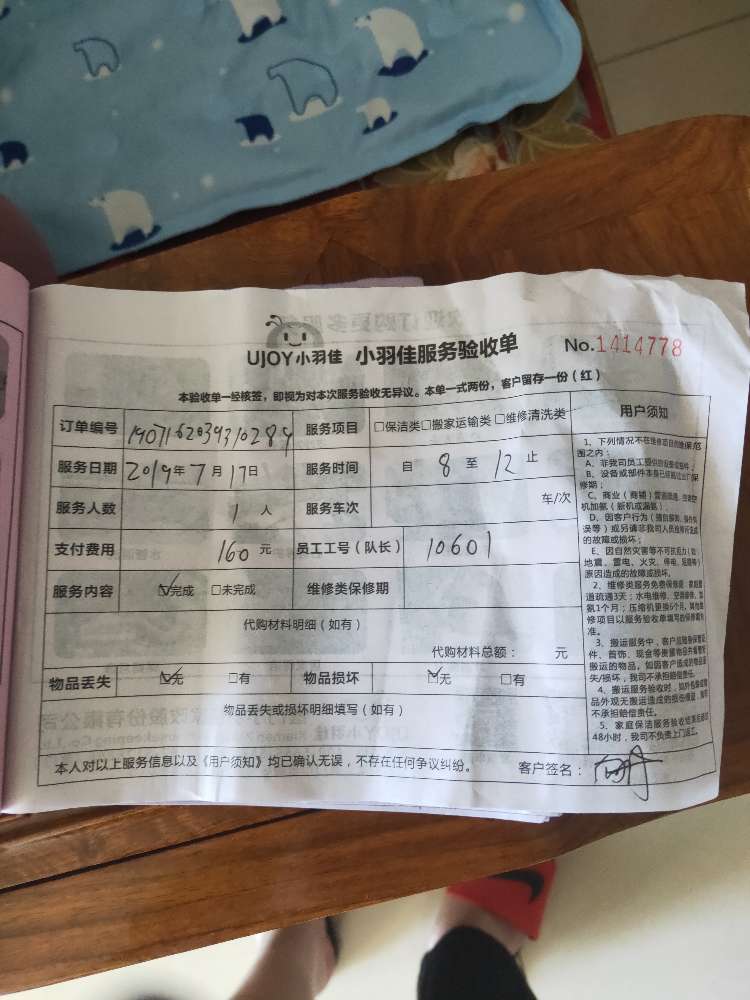 UJOY小羽佳 小羽佳服务验收单 No.1414778
本验收单一经核签，即视为对本次服务验收无异议。本单一式两份，客户留存一份（红）
订单编号 服务项目 □保洁类□搬家运输类□维修清洗类 用户须知
服务日期 2019年7月17日 服务时间 自 8 至 12 止
服务人数 1 人 服务车次 车/次
支付费用 160 元 员工工号（队长） 10601
服务内容 ☑完成 □未完成 维修类保修期
代购材料明细（如有）
代购材料总额： 元
物品丢失 ☑无 □有 物品损坏 ☑无 □有
物品丢失或损坏明细填写（如有）
本人对以上服务信息以及《用户须知》均已确认无误，不存在任何争议纠纷。 客户签名：
1、下列情况不在维修项目的维保范
围之内：
A、非我司员工提供的
B、设备或部件本身已
修期；
C、商业（商铺）
机加氨（新机或漏氨）
D、因客户行为
误等）或另请非我司人员
的故障或损坏；
E、因自然灾害等不可抗力（如：
地震、雷电、火灾、停电、
原因造成的故障或损坏。
2、维修类服务免费保修期：
道疏通3天；水电维修、空调
氨1个月；压缩机更换6个月，其他
修项目以服务验收单填写的保修期为
准。
3、搬运服务中，客户应随身保管证
件、首饰、现金等贵重物品
搬运的物品。如因客户造成的物品丢
失/损坏，我司不承担赔偿责任。
4、搬运服务验收时，如外包装或物
品外观无搬运造成的损伤痕迹，我司
不承担赔偿责任。
5、家庭保洁服务验收结束后超过
48小时，我司不负责上门返工。